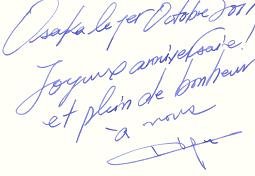 Osaka le 1er Octobre 2011
Joyeux anniversaire!
et plein de bonheur
à nous